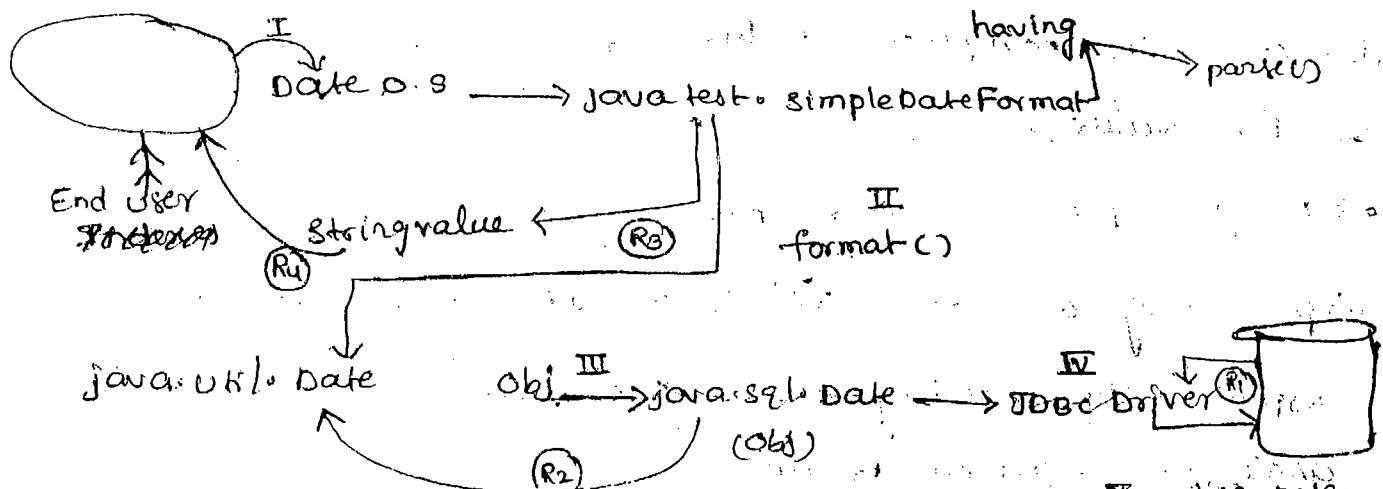 having
I
Date O.S → java test. simpleDateFormat → parse()
End user
String value
R3
II
format()
R4
java.util.Date
Obj III → java.sql.Date
(Obj)
IV
JDBC Driver
R1
R2